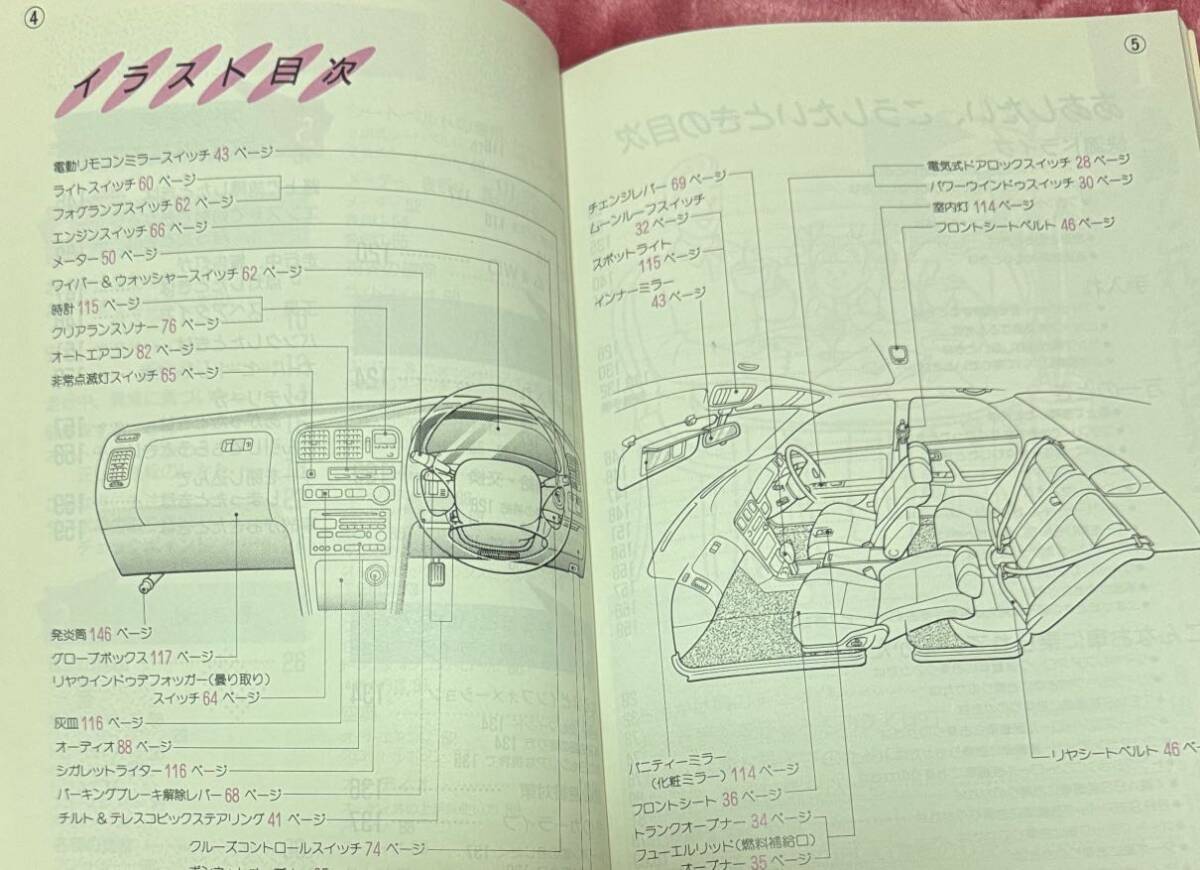 ④
イラスト目次
電動リモコンミラースイッチ43ページ
ライトスイッチ60ページ
フォグランプスイッチ62ページ
エンジンスイッチ66ページ
メーター50ページ
ワイパー&ウオッシャースイッチ62ページ
時計115ページ
クリアランスソナー76ページ
オートエアコン82ページ
非常点滅灯スイッチ65ページ
発炎筒146ページ
グローブボックス117ページ
リヤウインドゥデフォッガー(曇り取り)
スイッチ64ページ
灰皿116ページ
オーディオ88ページ
シガレットライター116ページ
パーキングブレーキ解除レバー68ページ
チルト&テレスコピックステアリング41ページ
クルーズコントロールスイッチ74ページ
⑤
チェンジレバー69ページ
ムーンルーフスイッチ
32ページ
スポットライト
115ページ
インナーミラー
43ページ
電気式ドアロックスイッチ28ページ
パワーウインドゥスイッチ30ページ
室内灯114ページ
フロントシートベルト46ページ
リヤシートベルト46ペー
バニティーミラー
(化粧ミラー)114ページ
フロントシート36ページ
トランクオープナー34ページ
フューエルリッド(燃料補給口)
オープナー35ページ